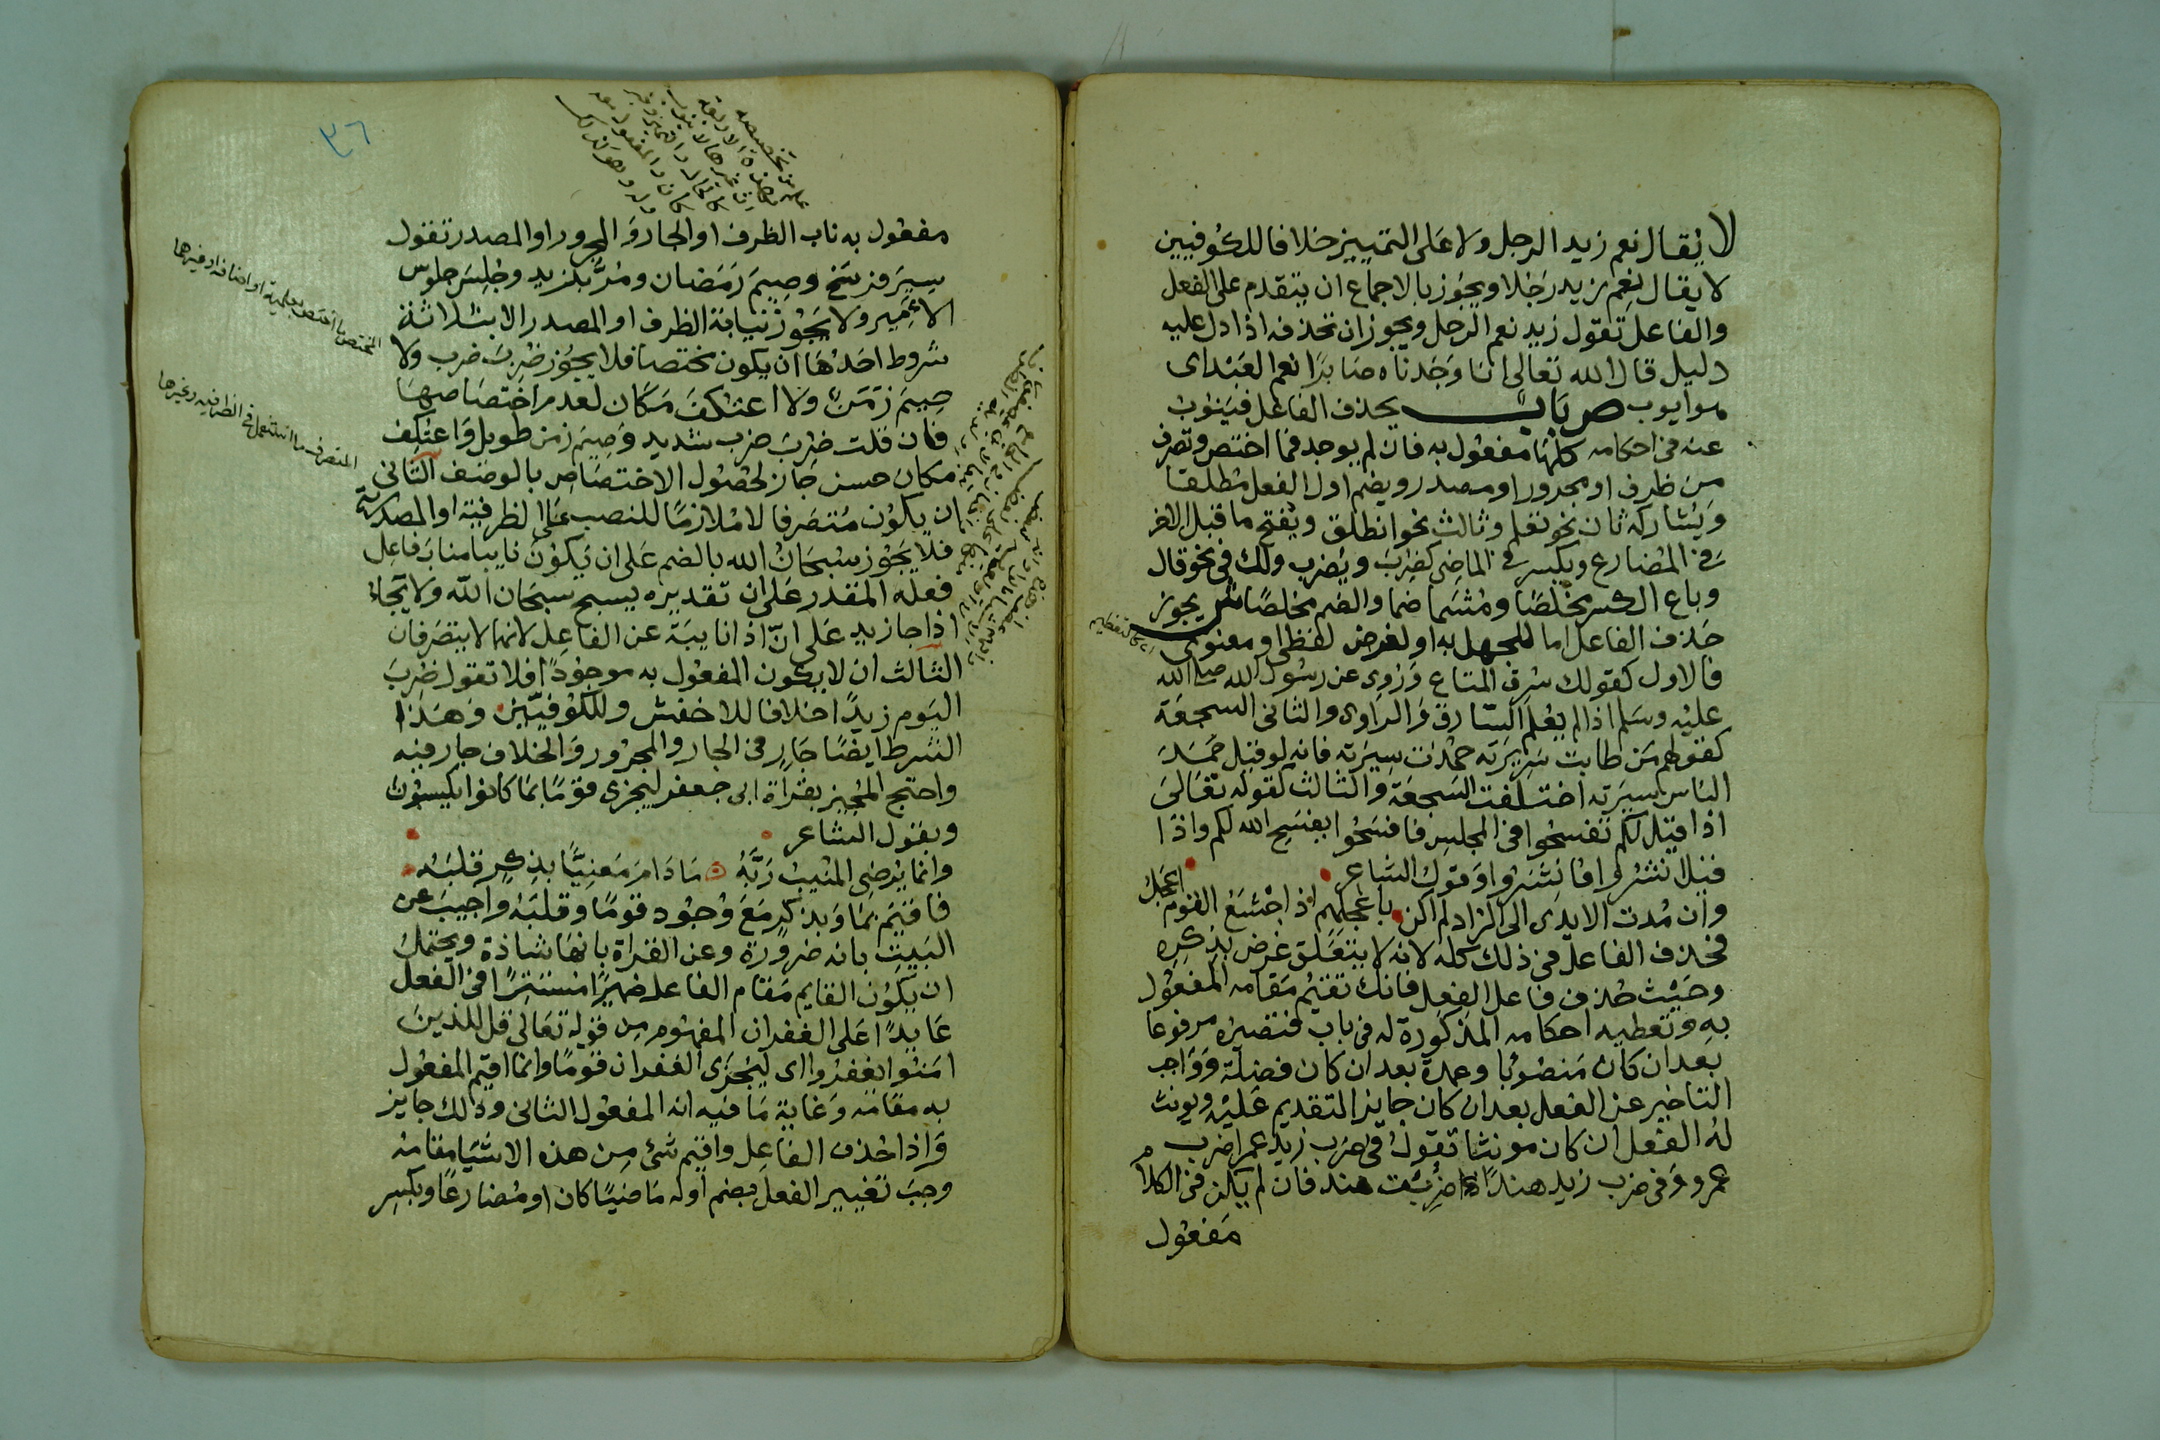 لا يقال نعم زيد الرجل ولا على التمييز خلافا للكوفيين
لا يقال نعم زيد رجلا ويجوز بالاجماع ان يتقدم على الفعل
والفاعل تقول زيد نعم الرجل ويجوز ان تحذفه اذا دل عليه
دليل قال الله تعالى انا وجدناه صابرا نعم العبد اى
هو ايوب ص باب يحذف الفاعل فينوب
عنه فى احكامه كلها مفعول به فان لم يوجد فما اختص وتصرف
من ظرف او مجرور او مصدر ويضم اول الفعل مطلقا
ويشاركه ثان نحو تعلم وثالث نحو انطلق ويفتح ما قبل الاخر
فى المضارع ويكسر فى الماضى كضرب ويضرب ولك فى نحو قال
وباع الكسر مخلصا ومشما ضما والضم مخلصا ش يجوز
حذف الفاعل اما للجهل به او لغرض لفظى او معنوى
فالاول كقولك سرق المتاع وروى عن رسول الله صلى الله
عليه وسلم اذا لم يعلم السارق والراوى والثانى السجعة
كقولهم من طابت سريرته حمدت سيرته فانه لو قيل حمد
الناس سيرته اختلفت السجعة والثالث كقوله تعالى
اذا قيل لكم تفسحوا فى المجلس فافسحوا يفسح الله لكم واذا
قيل انشزوا فانشزوا وقول الشاعر
وان مدت الايدى الى الزاد لم اكن باعجلهم اذ اجشع القوم اعجل
فحذف الفاعل فى ذلك كله لانه لا يتعلق غرض بذكره
وحيث حذف فاعل الفعل فانك تقيم مقامه المفعول
به وتعطيه احكامه المذكورة له فى باب فتصيره مرفوعا
بعد ان كان منصوبا وعمدة بعد ان كان فضلة وواجب
التاخير عن الفعل بعد ان كان جايز التقديم عليه ويونث
له الفعل ان كان مونثا تقول فى ضرب زيد عمرا ضرب
عمرو وفى ضرب زيد هندا ضربت هند فان لم يكن فى الكلام
مفعول
٣٦
مفعول به ناب الظرف او الجار والمجرور او المصدر تقول
سير فرسخ وصيم رمضان ومر بزيد وجلس جلوس
الامير ولا يجوز نيابة الظرف او المصدر الا بثلاثة
شروط احدها ان يكون مختصا فلا يجوز ضرب ضرب ولا
صيم زمن ولا اعتكف مكان لعدم اختصاصها
فان قلت ضرب ضرب شديد وصيم زمن طويل واعتكف
مكان حسن جاز لحصول الاختصاص بالوصف الثانى
ان يكون متصرفا لا ملازما للنصب على الظرفية او المصدرية
فلا يجوز سبحان الله بالضم على ان يكون نايبا مناب فاعل
فعله المقدر على ان تقديره يسبح سبحان الله ولا يجاء
اذا جا زيد على ان اذا نايبة عن الفاعل لانهما لا يتصرفان
الثالث ان لا يكون المفعول به موجودا فلا تقول ضرب
اليوم زيدا خلافا للاخفش وللكوفيين وهذا
الشرط ايضا جار فى الجار والمجرور والخلاف جار فيه
واحتج المجيز بقراة ابى جعفر ليجزى قوما بما كانوا يكسبون
وبقول الشاعر
وانما يرضى المنيب ربه ما دام معنيا بذكر قلبه
فاقيم بما وبذكر مع وجود قوما وقلبه واجيب عن
البيت بانه ضرورة وعن القراة بانها شاذة ويحتمل
ان يكون القايم مقام الفاعل ضميرا مستترا فى الفعل
عايدا على الغفران المفهوم من قوله تعالى قل للذين
امنوا يغفروا اى ليجزى الغفران قوما وانما اقيم المفعول
به مقامه وغاية ما فيه انه المفعول الثانى وذلك جايز
واذا حذف الفاعل واقيم شى من هذه الاشيا مقامه
وجب تغيير الفعل بضم اوله ماضيا كان او مضارعا وبكسر
المختص ما اختص بعلمية او اضافة او غيرها
المتصرف ما استعمل فى الظرفية وغيرها